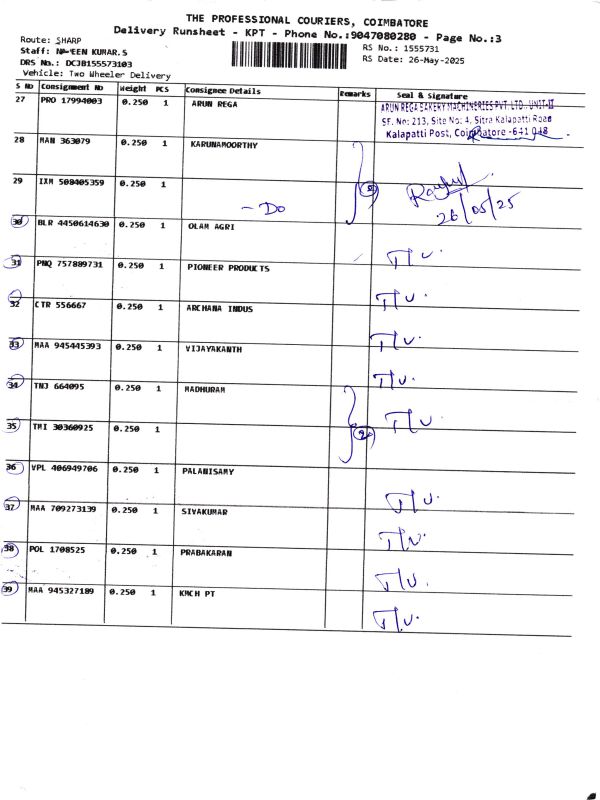 THE PROFESSIONAL COURIERS, COIMBATORE
Delivery Runsheet - KPT - Phone No.:9047080280 - Page No.:3
Route: SHARP
RS No.: 1555731
Staff: EEN KUMAR.S
RS Date: 26-May-2025
DRS No.: DCJB155573103
Vehicle: Two Wheeler Delivery
S No Consignment No Weight PCS Consignee Details Remarks Seal & Signature
27 PRO 17994003 0.250 1 ARUN REGA
ARUN REGA BAKERY MACHINERIES PVT. LTD., UNIT-II
SF. No: 213, Site No: 4, Sitra Kalapatti Road
Kalapatti Post, Coimbatore -641 048
28 MAN 363079 0.250 1 KARUNAMOORTHY
29 IXM 508405359 0.250 1
- Do
26/05/25
30 BLR 4450614630 0.250 1 OLAM AGRI
31 PNQ 757889731 0.250 1 PIONEER PRODUCTS
32 CTR 556667 0.250 1 ARCHANA INDUS
33 MAA 945445393 0.250 1 VIJAYAKANTH
34 TNJ 664095 0.250 1 MADHURAM
35 TMI 30360925 0.250 1
36 VPL 406949706 0.250 1 PALANISAMY
37 MAA 709273139 0.250 1 SIVAKUMAR
38 POL 1708525 0.250 1 PRABAKARAN
39 MAA 945327189 0.250 1 KMCH PT